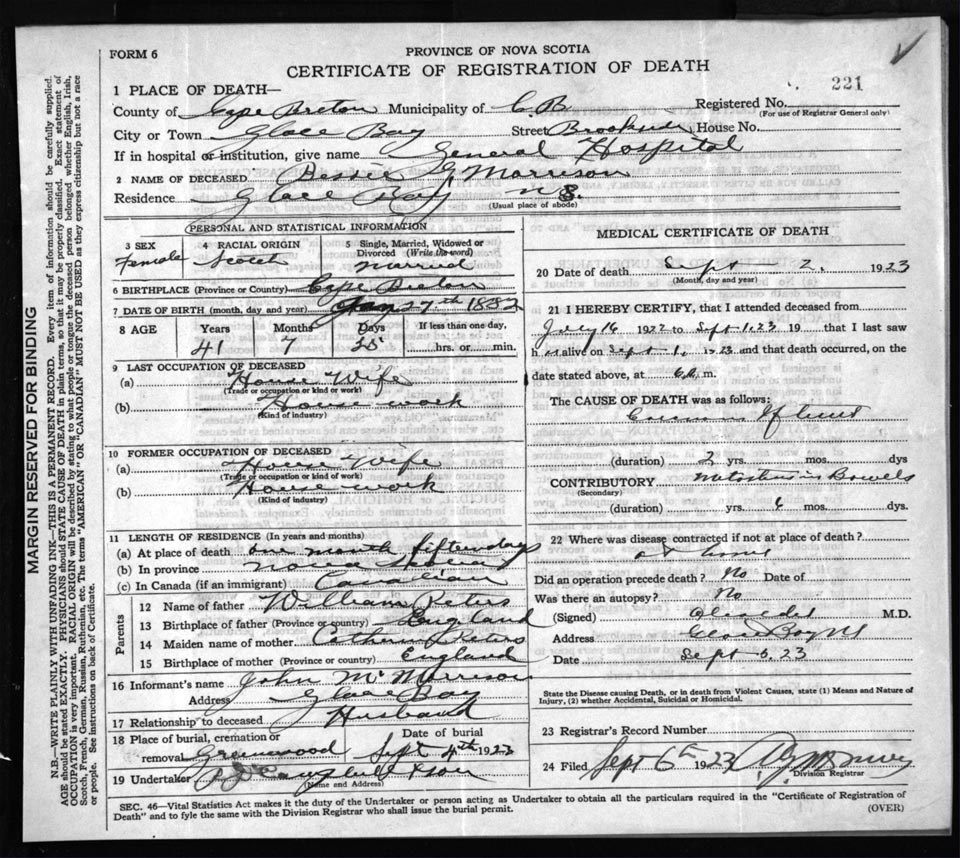 FORM 6
PROVINCE OF NOVA SCOTIA
CERTIFICATE OF REGISTRATION OF DEATH
221
1 PLACE OF DEATH—
County of Cape Breton Municipality of C.B. Registered No.
(For use of Registrar General only)
City or Town Glace Bay Street House No.
If in hospital or institution, give name General Hospital
2 NAME OF DECEASED Bessie G Morrison
Residence Glace Bay N.S.
(Usual place of abode)
PERSONAL AND STATISTICAL INFORMATION
3 SEX 4 RACIAL ORIGIN 5 Single, Married, Widowed or Divorced (Write the word)
Female Scotch Married
6 BIRTHPLACE (Province or Country) Cape Breton
7 DATE OF BIRTH (month, day and year) Jan 27th 1882
8 AGE Years Months Days If less than one day,
41 7 hrs. or min.
9 LAST OCCUPATION OF DECEASED
(a) House Wife
(Trade or occupation or kind of work)
(b) House work
(Kind of industry)
10 FORMER OCCUPATION OF DECEASED
(a) House Wife
(Trade or occupation or kind of work)
(b) House work
(Kind of industry)
11 LENGTH OF RESIDENCE (In years and months)
(a) At place of death one month fifteen days
(b) In province Nova Scotia
(c) In Canada (if an immigrant) Canadian
Parents
12 Name of father William Peters
13 Birthplace of father (Province or country) England
14 Maiden name of mother Catherine Peters
15 Birthplace of mother (Province or country) England
16 Informant's name John Mc Morrison
Address Glace Bay
17 Relationship to deceased Husband
18 Place of burial, cremation or removal Greenwood Date of burial Sept 4th 1923
19 Undertaker & Son
(Name and Address)
MEDICAL CERTIFICATE OF DEATH
20 Date of death Sept 2. 1923
(Month, day and year)
21 I HEREBY CERTIFY, that I attended deceased from
July 16 1922 to Sept 1, 23 19 that I last saw
her alive on Sept 1, 1923 and that death occurred, on the
date stated above, at m.
The CAUSE OF DEATH was as follows:
(duration) 2 yrs. mos. dys
CONTRIBUTORY in Bowels
(Secondary)
(duration) yrs. 6 mos. dys.
22 Where was disease contracted if not at place of death?
at home
Did an operation precede death? No Date of
Was there an autopsy? No
(Signed) M.D.
Address Glace Bay NS
Date Sept 5, 23
State the Disease causing Death, or in death from Violent Causes, state (1) Means and Nature of Injury, (2) whether Accidental, Suicidal or Homicidal.
23 Registrar's Record Number
24 Filed Sept 5 1923
Division Registrar
SEC. 46—Vital Statistics Act makes it the duty of the Undertaker or person acting as Undertaker to obtain all the particulars required in the "Certificate of Registration of
Death" and to fyle the same with the Division Registrar who shall issue the burial permit. (OVER)
MARGIN RESERVED FOR BINDING
N.B.—WRITE PLAINLY WITH UNFADING INK—THIS IS A PERMANENT RECORD. Every item of information should be carefully supplied.
AGE should be stated EXACTLY. PHYSICIANS should STATE CAUSE OF DEATH in plain terms, so that it may be properly classified. Exact statement of
OCCUPATION is very important. RACIAL ORIGIN will be described by stating to what people or tongue the deceased person belonged whether English, Irish,
Scotch, French, German, Russian, Ruthenian, etc. The terms "AMERICAN" OR "CANADIAN" MUST NOT BE USED as they express citizenship but not a race
or people. See instructions on back of Certificate.